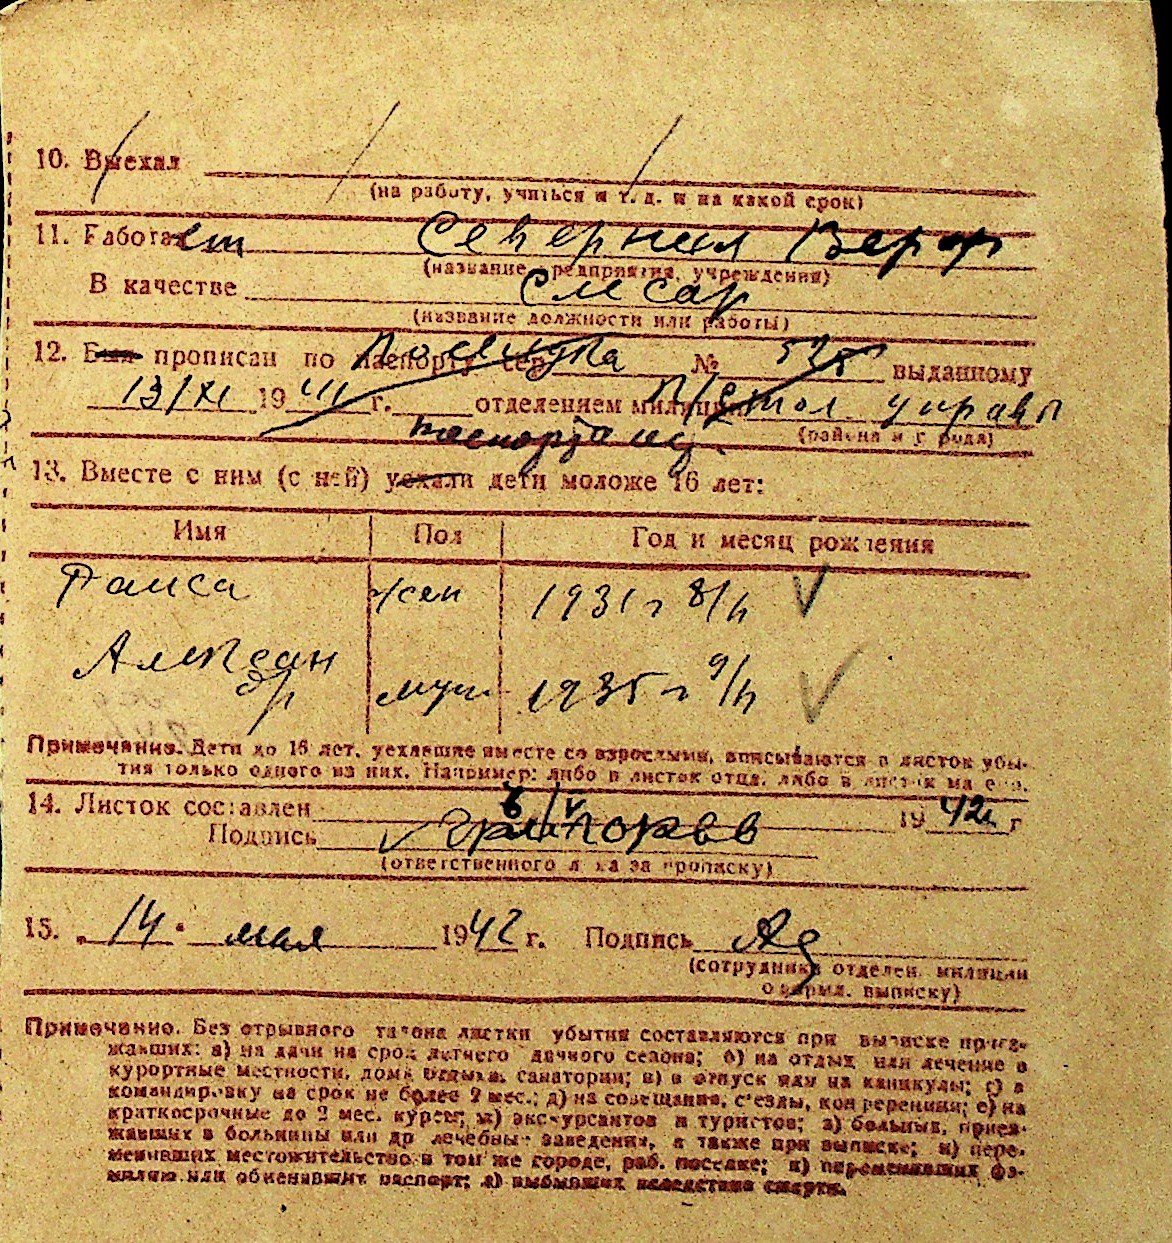 10. Выехал
(на работу, учиться и т. д. и на какой срок)
11. Работает Северная Верф
(название предприятия, учреждения)
В качестве слесар
(название должности или работы)
12. Был прописан по паспорту сер. № 575 выданному
13/XI 1941 г. отделением милиции П/стол управы
паспорта
(района и города)
13. Вместе с ним (с ней) уехали дети моложе 16 лет:
Имя Пол Год и месяц рождения
Раиса жен 1931 г 8/
Александр муж 1935 г 9/
Примечание. Дети до 16 лет, уехавшие вместе со взрослыми, вписываются в листок убы-
тия только одного из них. Например: либо в листок отца, либо в листок матери.
14. Листок составлен 6/V 1942 г
Подпись Григорьев
(ответственного лица за прописку)
15. „14“ мая 1942 г. Подпись
(сотрудника отделен. милиции
оформл. выписку)
Примечание. Без отрывного талона листки убытия составляются при выписке приез-
жавших: а) на дачи на срок летнего дачного сезона; б) на отдых или лечение в
курортные местности, дома отдыха, санатории; в) в отпуск или на каникулы; г) в
командировку на срок не более 2 мес.; д) на совещания, с'езды, конференции; е) на
краткосрочные до 2 мес. курсы; ж) экскурсантов и туристов; з) больных, приез-
жавших в больницы или др лечебные заведения, а также при выписке; и) пере-
менивших местожительство в том же городе, раб. поселке; к) переменивших фа-
милию или обменявших паспорт; л) выбывших вследствие смерти.